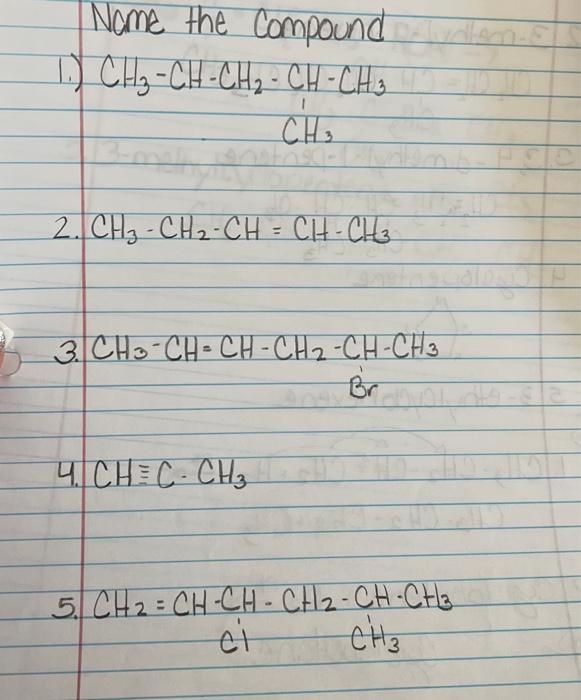 Name the Compound
1.) CH3-CH-CH2-CH-CH3
CH3
2. CH3-CH2-CH=CH-CH3
3. CH3-CH=CH-CH2-CH-CH3
Br
4. CH≡C-CH3
5. CH2=CH-CH-CH2-CH-CH3
Cl CH3